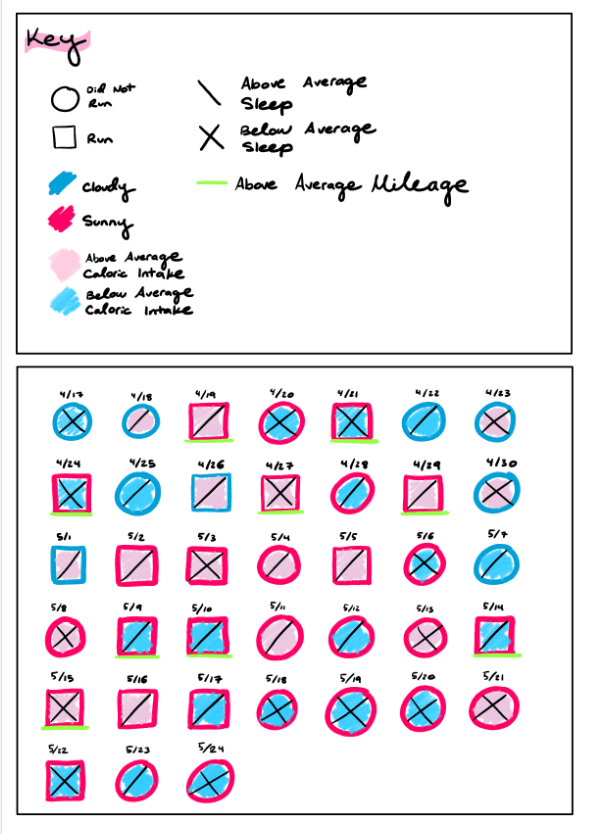 Key
Did Not
Run
Run
Cloudy
Sunny
Above Average
Caloric Intake
Below Average
Caloric Intake
Above Average
Sleep
Below Average
Sleep
Above Average Mileage
4/17 4/18 4/19 4/20 4/21 4/22 4/23
4/24 4/25 4/26 4/27 4/28 4/29 4/30
5/1 5/2 5/3 5/4 5/5 5/6 5/7
5/8 5/9 5/10 5/11 5/12 5/13 5/14
5/15 5/16 5/17 5/18 5/19 5/20 5/21
5/22 5/23 5/24